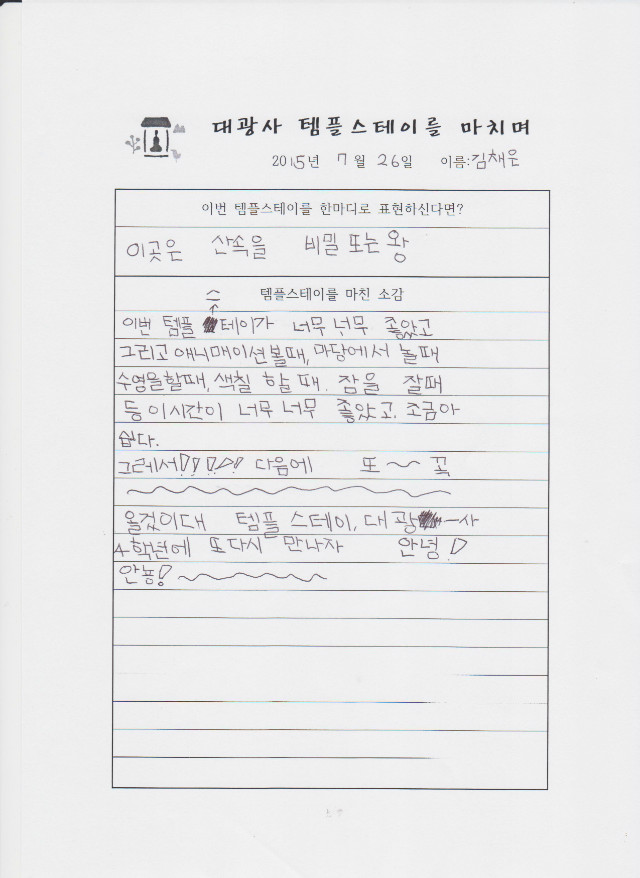 대광사 템플스테이를 마치며
2015년 7월 26일 이름:김채은
이번 템플스테이를 한마디로 표현하신다면?
이곳은 산속을 비밀 또는 왕
템플스테이를 마친 소감
스
이번 템플 테이가 너무 너무 좋았고
그리고 애니매이션볼때, 마당에서 놀때
수영을할때, 색칠 할 때. 잠을 잘때
등 이시간이 너무 너무 좋았고. 조금아
쉽다.
그레서!!!!! 다음에 또~ 꼭
올겄이대 템플 스테이, 대광-사
4학년에 또다시 만나자 안녕!
안뇽!